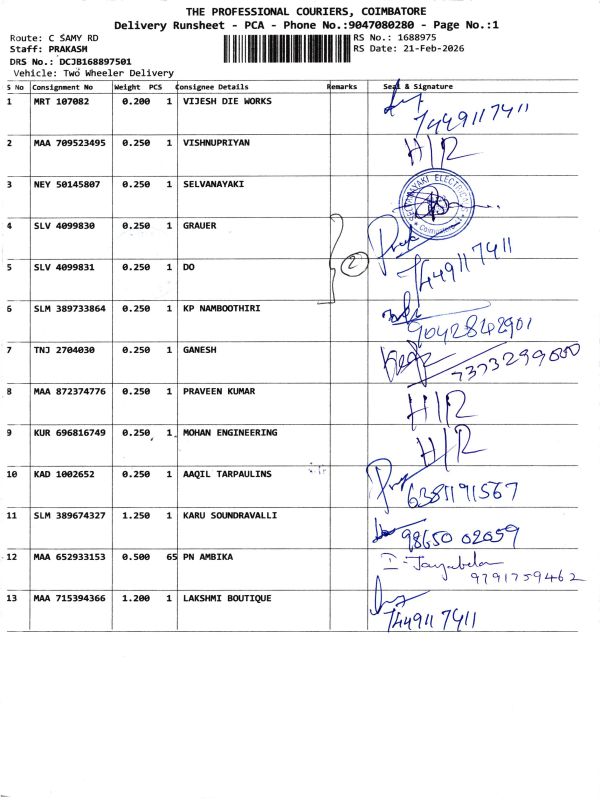 THE PROFESSIONAL COURIERS, COIMBATORE
Delivery Runsheet - PCA - Phone No.:9047080280 - Page No.:1
Route: C SAMY RD RS No.: 1688975
Staff: PRAKASH RS Date: 21-Feb-2026
DRS No.: DCJB168897501
Vehicle: Two Wheeler Delivery
S No Consignment No Weight PCS Consignee Details Remarks Seal & Signature
1 MRT 107082 0.200 1 VIJESH DIE WORKS
7449117411
2 MAA 709523495 0.250 1 VISHNUPRIYAN H/R
3 NEY 50145807 0.250 1 SELVANAYAKI
4 SLV 4099830 0.250 1 GRAUER
2
5 SLV 4099831 0.250 1 DO 7449117411
6 SLM 389733864 0.250 1 KP NAMBOOTHIRI
9042842901
7 TNJ 2704030 0.250 1 GANESH
7373299000
8 MAA 872374776 0.250 1 PRAVEEN KUMAR H/R
9 KUR 696816749 0.250 1 MOHAN ENGINEERING H/R
10 KAD 1002652 0.250 1 AAQIL TARPAULINS
6381191567
11 SLM 389674327 1.250 1 KARU SOUNDRAVALLI
98650 02059
12 MAA 652933153 0.500 65 PN AMBIKA
9791759462
13 MAA 715394366 1.200 1 LAKSHMI BOUTIQUE
7449117411